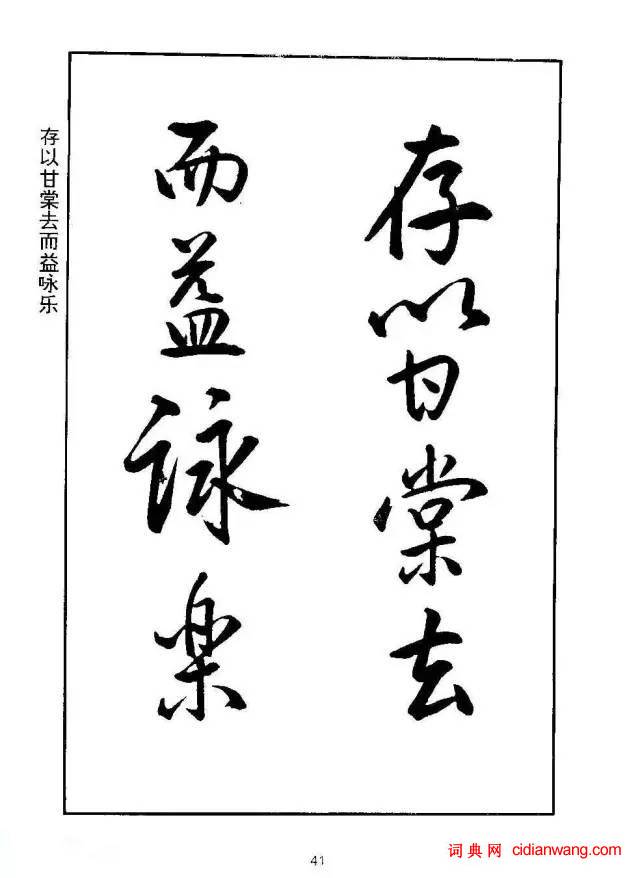 存以甘棠去
而益詠楽
存以甘棠去而益咏乐
41
词典网 cidianwang.com